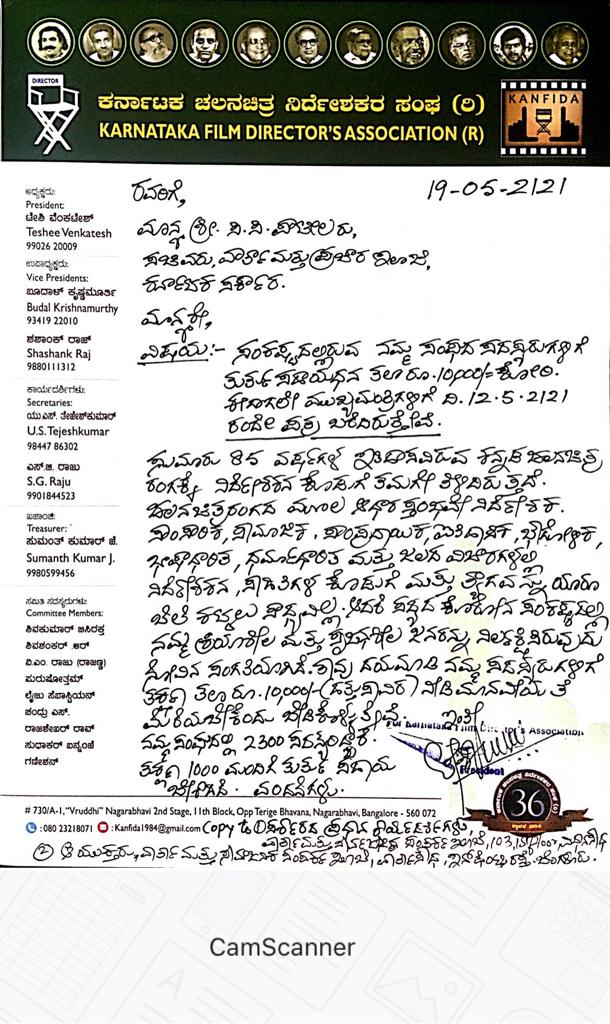 DIRECTOR
ಕರ್ನಾಟಕ ಚಲನಚಿತ್ರ ನಿರ್ದೇಶಕರ ಸಂಘ (ರಿ)
KARNATAKA FILM DIRECTOR'S ASSOCIATION (R)
KANFIDA
ಅಧ್ಯಕ್ಷರು:
President:
ಟೇಶಿ ವೆಂಕಟೇಶ್
Teshee Venkatesh
99026 20009
ಉಪಾಧ್ಯಕ್ಷರು:
Vice Presidents:
ಬೂದಾಳ್ ಕೃಷ್ಣಮೂರ್ತಿ
Budal Krishnamurthy
93419 22010
ಶಶಾಂಕ್ ರಾಜ್
Shashank Raj
9880111312
ಕಾರ್ಯದರ್ಶಿಗಳು:
Secretaries:
ಯು.ಎಸ್. ತೇಜೇಶ್‌ಕುಮಾರ್
U.S. Tejeshkumar
98447 86302
ಎಸ್.ಜಿ. ರಾಜು
S.G. Raju
9901844523
ಖಜಾಂಚಿ:
Treasurer:
ಸುಮಂತ್ ಕುಮಾರ್ ಜೆ.
Sumanth Kumar J.
9980599456
ಸಮಿತಿ ಸದಸ್ಯರುಗಳು:
Committee Members:
ಶಿವಕುಮಾರ್ ಜೇವರಗಿ
ಶಿವಶಂಕರ್ .ಆರ್
ವಿ.ಎಂ. ರಾಜು (ರಾಜಣ್ಣ)
ಪುರುಷೋತ್ತಮ್
ಲೈಜು ಸೆಬಾಸ್ಟಿಯನ್
ಚಂದ್ರು ಎಸ್.
ರಾಜಶೇಖರ್ ರಾವ್
ಸುಧಾಕರ್ ಬನ್ನಂಜೆ
ಗಣೇಶನ್
ರವರಿಗೆ,
19-05-2121
ಮಾನ್ಯ ಶ್ರೀ. ಸಿ. ಸಿ. ಪಾಟೀಲರು,
ಸಚಿವರು, ವಾರ್ತಾ ಮತ್ತು ಪ್ರಚಾರ ಇಲಾಖೆ,
ಕರ್ನಾಟಕ ಸರ್ಕಾರ.
ಮಾನ್ಯರೇ,
ವಿಷಯ:- ಸಂಕಷ್ಟದಲ್ಲಿರುವ ನಮ್ಮ ಸಂಘದ ಸದಸ್ಯರುಗಳಿಗೆ
ತುರ್ತು ಸಹಾಯಧನ ತಲಾ ರೂ. 10,000/= ಕೋರಿ.
ಈಗಾಗಲೇ ಮುಖ್ಯಮಂತ್ರಿಗಳಿಗೆ ದಿ. 12.5.2121
ರಂದೇ ಪತ್ರ ಬರೆದಿರುತ್ತೇವೆ.
ಸುಮಾರು 85 ವರ್ಷಗಳ ಇತಿಹಾಸವಿರುವ ಕನ್ನಡ ಚಲನಚಿತ್ರ
ರಂಗಕ್ಕೆ ನಿರ್ದೇಶಕನ ಕೊಡುಗೆ ತಮಗೇ ತಿಳಿದಿರುತ್ತದೆ.
ಚಲನಚಿತ್ರರಂಗದ ಮೂಲ ಆಧಾರ ಸ್ತಂಭವೇ ನಿರ್ದೇಶಕ.
ಸಾಂಸಾರಿಕ, ಸಾಮಾಜಿಕ, ಸಾಂಪ್ರದಾಯಿಕ, ಐತಿಹಾಸಿಕ, ಭೌಗೋಳಿಕ,
ಭಾಷಾಧಾರಿತ, ಧರ್ಮಾಧಾರಿತ ಮತ್ತು ಜಲದ ವಿಚಾರಗಳಲ್ಲಿ
ನಿರ್ದೇಶಕನ, ಸಾಹಿತಿಗಳ ಕೊಡುಗೆ ಮತ್ತು ತ್ಯಾಗವನ್ನು ಯಾರೂ
ಬೆಲೆ ಕಟ್ಟಲು ಸಾಧ್ಯವಿಲ್ಲ. ಆದರೆ ಸಧ್ಯದ ಕೊರೋನ ಸಂಕಷ್ಟದಲ್ಲಿ
ನಮ್ಮ ಕ್ರಿಯಾಶೀಲ ಮತ್ತು ಸೃಜನಶೀಲ ಜನರನ್ನು ನಿರ್ಲಕ್ಷಿಸಿರುವುದು
ನೋವಿನ ಸಂಗತಿಯಾಗಿದೆ. ತಾವು ದಯಮಾಡಿ ನಮ್ಮ ಸದಸ್ಯರುಗಳಿಗೆ
ತಕ್ಷಣ ತಲಾ ರೂ. 10,000/- (ಹತ್ತು ಸಾವಿರ) ನೀಡಿ ಮಾನವೀಯತೆ
ಮೆರೆಯಬೇಕೆಂದು ಬೇಡಿಕೊಳ್ಳುತ್ತೇವೆ. ಇಂತೀ
ನಮ್ಮ ಸಂಘದಲ್ಲಿ 2300 ಸದಸ್ಯರಿದ್ದಾರೆ.
ತಕ್ಷಣ 1000 ಮಂದಿಗೆ ತುರ್ತು ಸಹಾಯ
ಬೇಕಾಗಿದೆ. ವಂದನೆಗಳು.
For Karnataka Film Director's Association
President
36
# 730/A-1, "Vruddhi" Nagarabhavi 2nd Stage, 11th Block, Opp Terige Bhavana, Nagarabhavi, Bangalore - 560 072
: 080 23218071 : Kanfida1984@gmail.com
Copy to ① ಸರ್ಕಾರದ ಪ್ರಧಾನ ಕಾರ್ಯದರ್ಶಿಗಳು,
ವಾರ್ತಾ ಮತ್ತು ಸಾರ್ವಜನಿಕ ಸಂಪರ್ಕ ಇಲಾಖೆ, 103,
② ಆಯುಕ್ತರು, ವಾರ್ತಾ ಮತ್ತು ಸಾರ್ವಜನಿಕ ಸಂಪರ್ಕ ಇಲಾಖೆ, ವಾರ್ತಾಸೌಧ, ಇನ್‌ಫೆಂಟ್ರಿ ರಸ್ತೆ, ಬೆಂಗಳೂರು.
CamScanner